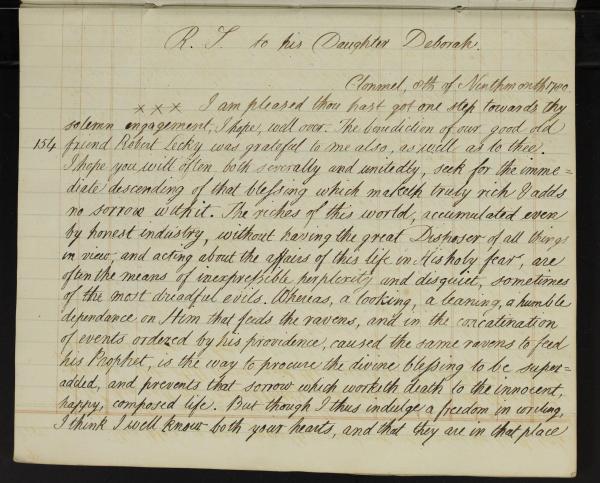 R. S. to his Daughter Deborah.
Clonmel, 8th of Ninthmonth 1780.
x x x I am pleased thou hast got one step towards thy
solemn engagement, I hope, well over. The benediction of our good old
154 friend Robert Lecky was grateful to me also, as well as to thee.
I hope you will often, both severally and unitedly, seek for the imme=
diate descending of that blessing which maketh truly rich & adds
no sorrow with it. The riches of this world, accumulated even
by honest industry, without having the great Disposer of all things
in view, and acting about the affairs of this life in His holy fear, are
often the means of inexpressible perplexity and disquiet, sometimes
of the most dreadful evils. Whereas, a looking, a leaning, a humble
dependance on Him that feeds the ravens, and in the concatenation
of events ordered by his providence, caused the same ravens to feed
his Prophet, is the way to procure the divine blessing to be super=
added, and prevents that sorrow which worketh death to the innocent,
happy, composed life. But though I thus indulge a freedom in writing,
I think I well know both your hearts, and that they are in that place